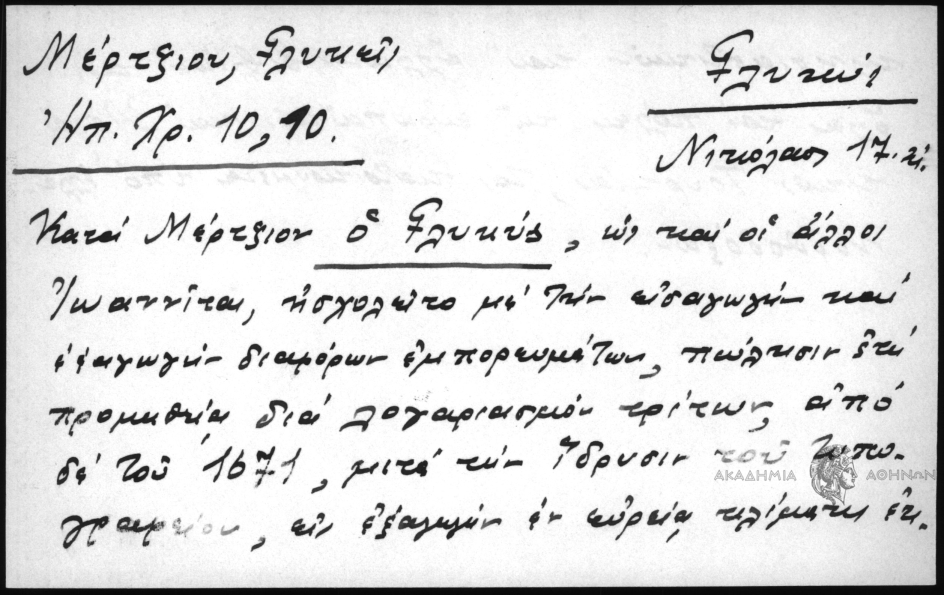 Μέρτζιου, Γλυκεῖς
Γλυκύς
Ἠπ. Χρ. 10, 10.
Νικόλαος 17. αἰ.
Κατά Μέρτζιον ὁ Γλυκύς, ὡς καί οἱ ἄλλοι
Ἰωαννῖται, ἠσχολεῖτο μέ τήν εἰσαγωγήν καί
ἐξαγωγήν διαφόρων ἐμπορευμάτων, πώλησιν ἐπί
προμηθείᾳ διά λογαριασμόν τρίτων, ἀπό
δέ τοῦ 1671, μετά τήν ἵδρυσιν τοῦ τυπο-
γραφείου, εἰς ἐξαγωγήν ἐν εὐρείᾳ κλίμακι
ΑΚΑΔΗΜΙΑ ΑΘΗΝΩΝ